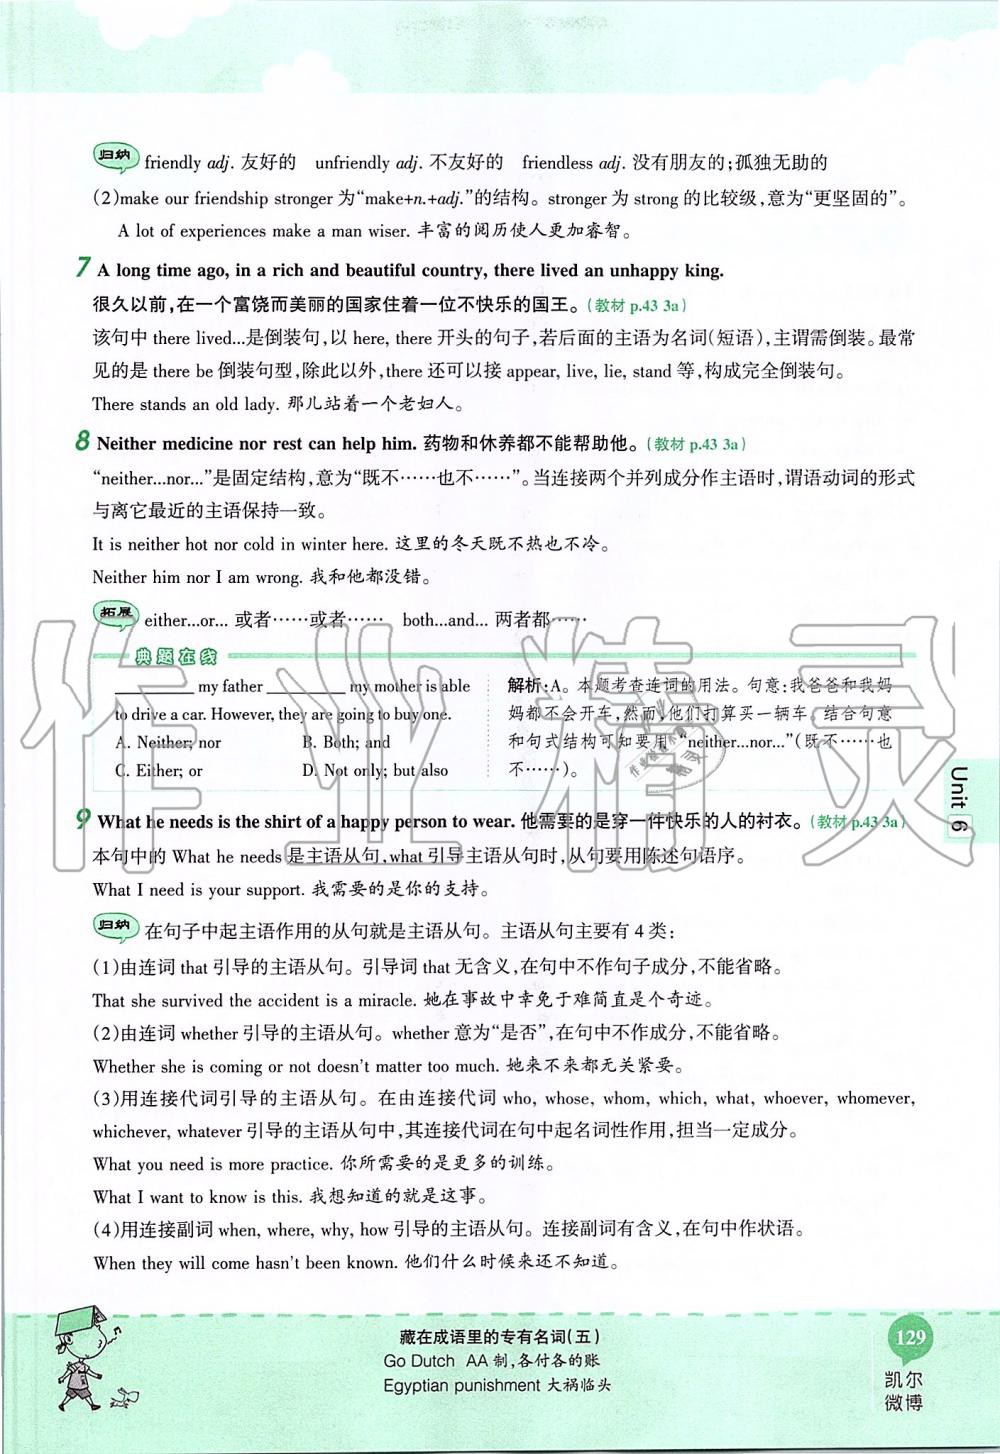 归纳 friendly adj. 友好的 unfriendly adj. 不友好的 friendless adj. 没有朋友的;孤独无助的
(2)make our friendship stronger 为“make+n.+adj.”的结构。stronger 为 strong 的比较级,意为“更坚固的”。
A lot of experiences make a man wiser. 丰富的阅历使人更加睿智。
7 A long time ago, in a rich and beautiful country, there lived an unhappy king.
很久以前,在一个富饶而美丽的国家住着一位不快乐的国王。(教材 p.43 3a)
该句中 there lived...是倒装句,以 here, there 开头的句子,若后面的主语为名词(短语),主谓需倒装。最常
见的是 there be 倒装句型,除此以外,there 还可以接 appear, live, lie, stand 等,构成完全倒装句。
There stands an old lady. 那儿站着一个老妇人。
8 Neither medicine nor rest can help him. 药物和休养都不能帮助他。(教材 p.43 3a)
“neither...nor...”是固定结构,意为“既不……也不……”。当连接两个并列成分作主语时,谓语动词的形式
与离它最近的主语保持一致。
It is neither hot nor cold in winter here. 这里的冬天既不热也不冷。
Neither him nor I am wrong. 我和他都没错。
拓展 either...or... 或者……或者…… both...and... 两者都……
典题在线
________ my father ________ my mother is able
to drive a car. However, they are going to buy one.
A. Neither; nor B. Both; and
C. Either; or D. Not only; but also
解析:A。本题考查连词的用法。句意:我爸爸和我妈
妈都不会开车,然而,他们打算买一辆车。结合句意
和句式结构可知要用“neither...nor...”(既不……也
不……)。
9 What he needs is the shirt of a happy person to wear. 他需要的是穿一件快乐的人的衬衣。(教材 p.43 3a)
本句中的 What he needs 是主语从句,what 引导主语从句时,从句要用陈述句语序。
What I need is your support. 我需要的是你的支持。
归纳 在句子中起主语作用的从句就是主语从句。主语从句主要有 4 类:
(1)由连词 that 引导的主语从句。引导词 that 无含义,在句中不作句子成分,不能省略。
That she survived the accident is a miracle. 她在事故中幸免于难简直是个奇迹。
(2)由连词 whether 引导的主语从句。whether 意为“是否”,在句中不作成分,不能省略。
Whether she is coming or not doesn't matter too much. 她来不来都无关紧要。
(3)用连接代词引导的主语从句。在由连接代词 who, whose, whom, which, what, whoever, whomever,
whichever, whatever 引导的主语从句中,其连接代词在句中起名词性作用,担当一定成分。
What you need is more practice. 你所需要的是更多的训练。
What I want to know is this. 我想知道的就是这事。
(4)用连接副词 when, where, why, how 引导的主语从句。连接副词有含义,在句中作状语。
When they will come hasn't been known. 他们什么时候来还不知道。
Unit 6
作业精灵
藏在成语里的专有名词(五)
Go Dutch AA 制,各付各的账
Egyptian punishment 大祸临头
129
凯尔
微博